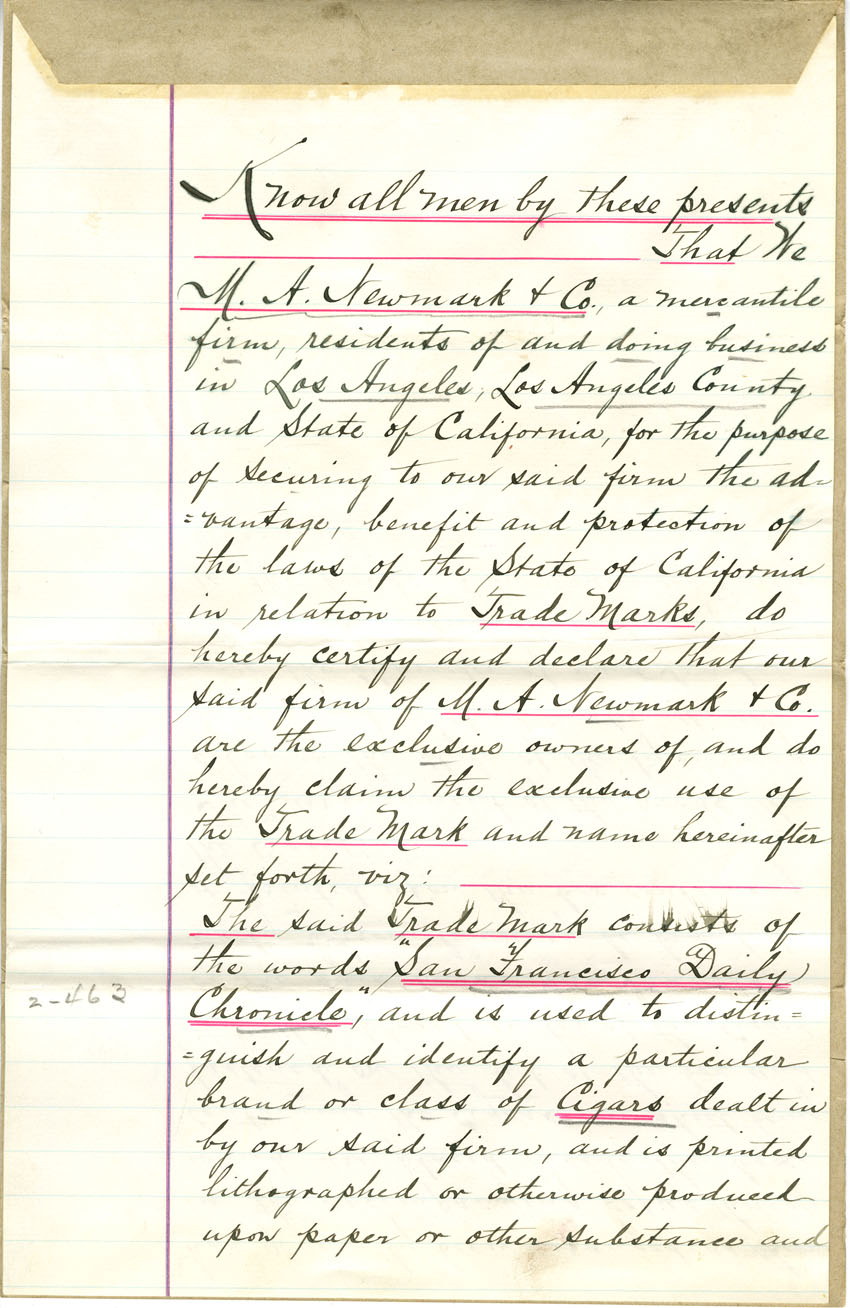 Know all men by these presents
That We
M. A. Newmark & Co., a mercantile
firm, residents of and doing business
in Los Angeles, Los Angeles County
and State of California, for the purpose
of securing to our said firm the ad=
=vantage, benefit and protection of
the laws of the State of California
in relation to Trade Marks, do
hereby certify and declare that our
said firm of M. A. Newmark & Co.
are the exclusive owners of, and do
hereby claim the exclusive use of
the Trade Mark and name hereinafter
set forth, viz:
The said Trade Mark consists of
the words "San "Francisco Daily
2-463
Chronicle", and is used to distin=
=guish and identify a particular
brand or class of Cigars dealt in
by our said firm, and is printed
lithographed or otherwise produced
upon paper or other substance and